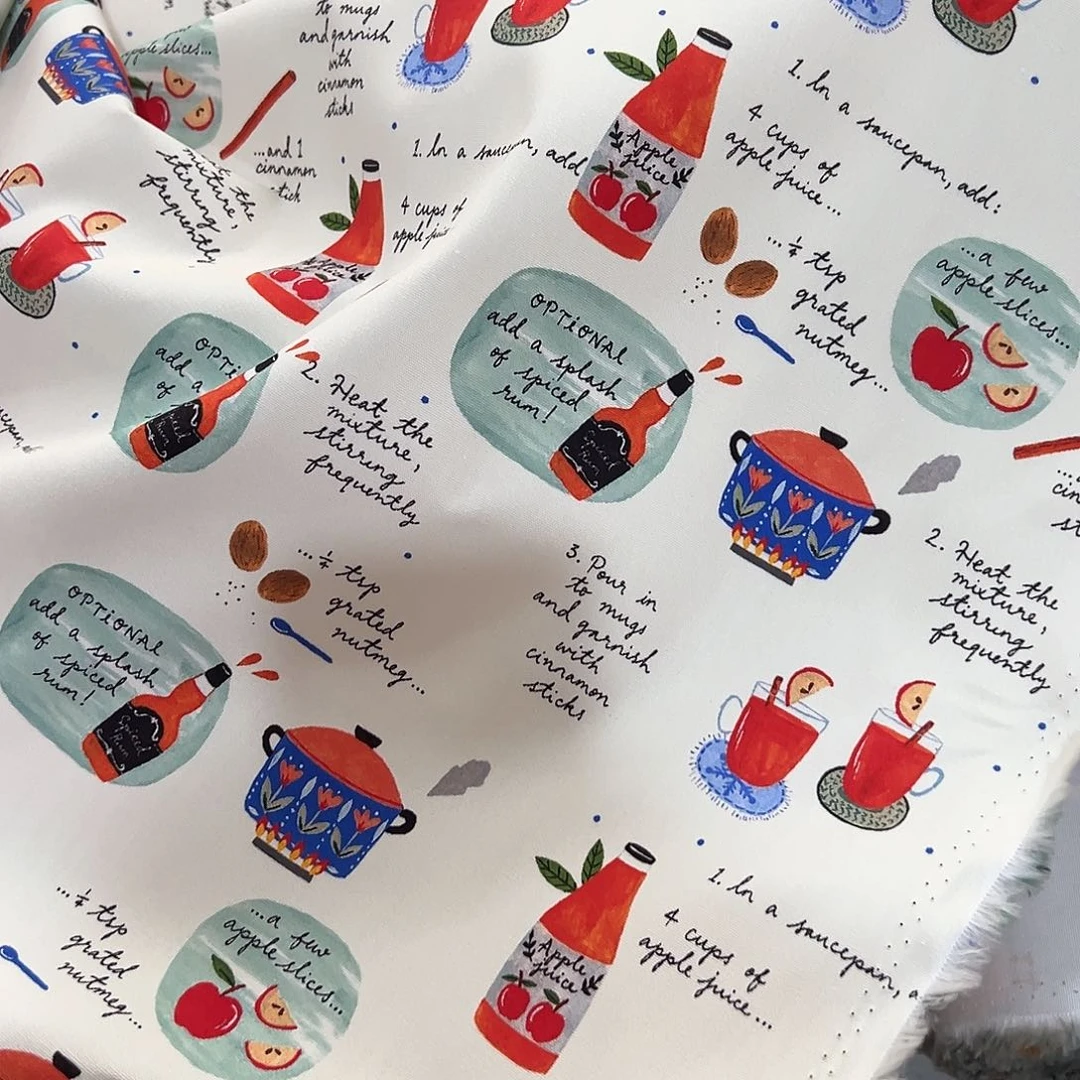 to mugs
and garnish
with
cinnamon
sticks
apple slices...
...and 1
cinnamon
stick
mix the
stirring,
frequently
1. In a saucepan, add
4 cups of
apple juice
Apple
juice
1. In a saucepan, add:
4 cups of
apple juice...
Apple
juice
...¼ tsp
grated
nutmeg...
...a few
apple slices...
OPTIONAL
add a splash
of spiced
rum!
Spiced
Rum
OPTi
add a
of
Spiced
Rum
2. Heat the
mixture,
stirring
frequently
...
cin
st
2. Heat the
mixture,
stirring
frequently
...¼ tsp
grated
nutmeg...
3. Pour in
to mugs
and garnish
with
cinnamon
sticks
OPTIONAL
add a splash
of spiced
rum!
Spiced
Rum
...¼ tsp
grated
nutmeg...
...a few
apple slices...
Apple
juice
1. In a saucepan, a
4 cups of
apple juice...